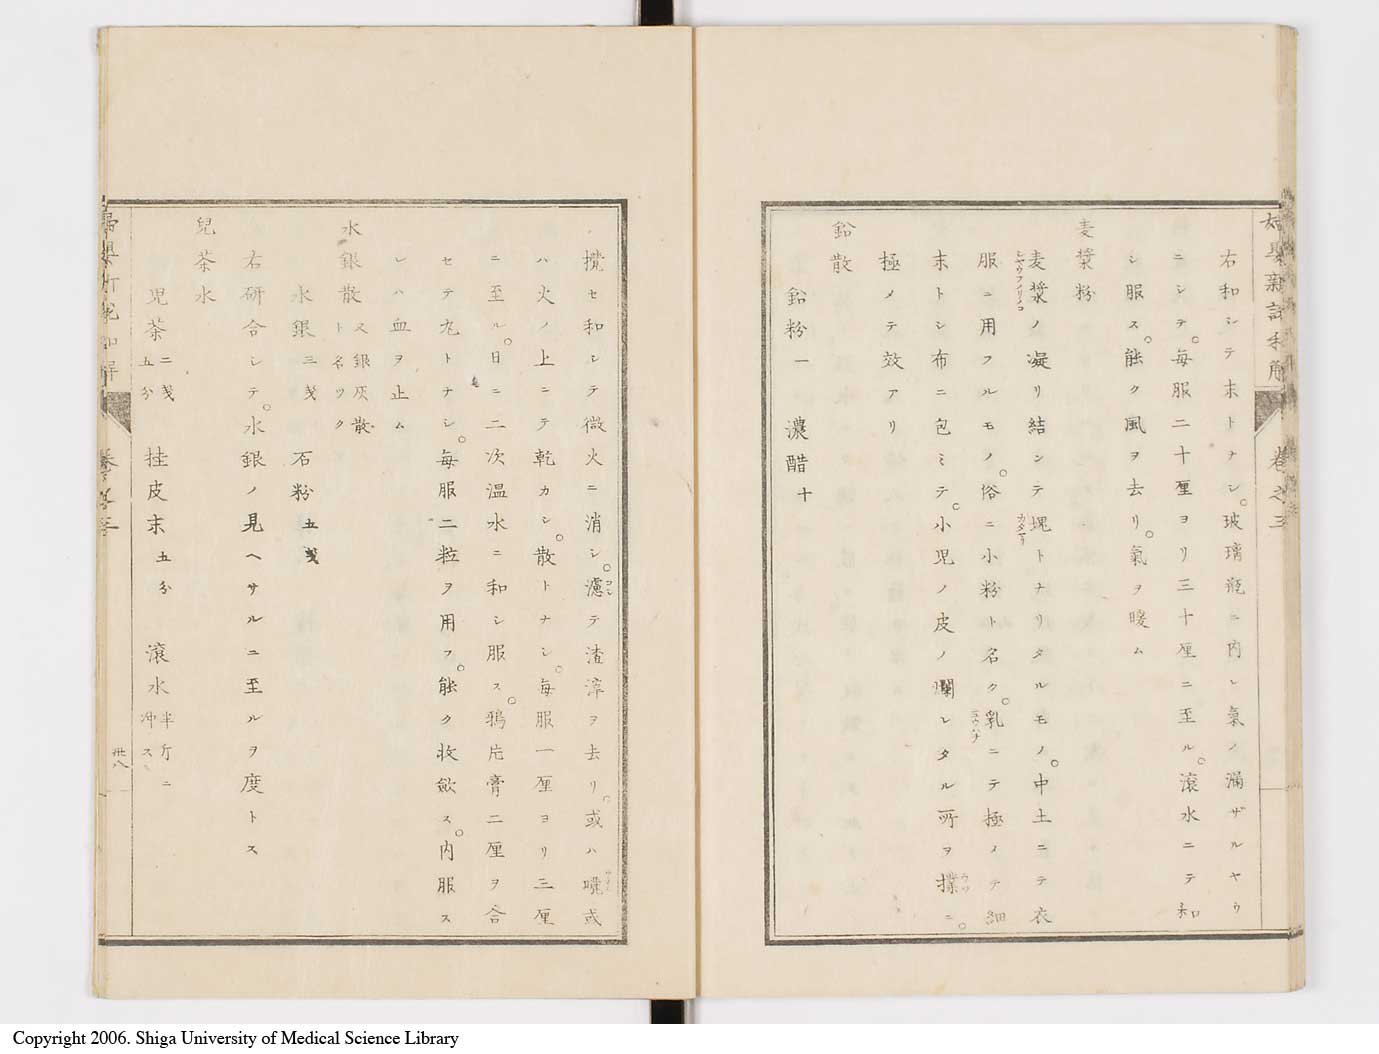 婦嬰新説和解 巻之三
右和シテ末トナシ。玻璃瓶ニ内レ氣ノ漏ザルヤウ
ニシテ。毎服二十厘ヨリ三十厘ニ至ル。滾水ニテ和
シ服ス。能ク風ヲ去リ。氣ヲ暖ム
麦漿粉
麦漿ノ凝リ結ンテ塊トナリタルモノ。中土ニテ衣
服ニ用フルモノ。俗ニ小粉ト名ク。乳ニテ極メテ細
末トシ布ニ包ミテ。小児ノ皮ノ爛レタル所ヲ撲ニ。
極メテ效アリ
鉛散
鉛粉一 濃醋十
攪セ和シテ微火ニ消シ。濾テ渣滓ヲ去リ。或ハ曬或
ハ火ノ上ニテ乾カシ。散トナシ。毎服一厘ヨリ三厘
ニ至ル。日ニ二次温水ニ和シ服ス。鴉片膏二厘ヲ合
セテ丸トナシ。毎服二粒ヲ用フ。能ク收歛ス。内服ス
レハ血ヲ止ム
水銀散 又銀灰散ト名ツク
水銀三戔 石粉五戔
右研合シテ。水銀ノ見ヘサルニ至ルヲ度トス
兒茶水
児茶二戔五分 桂皮末五分 滾水半斤ニ冲ス
卅八
Copyright 2006. Shiga University of Medical Science Library